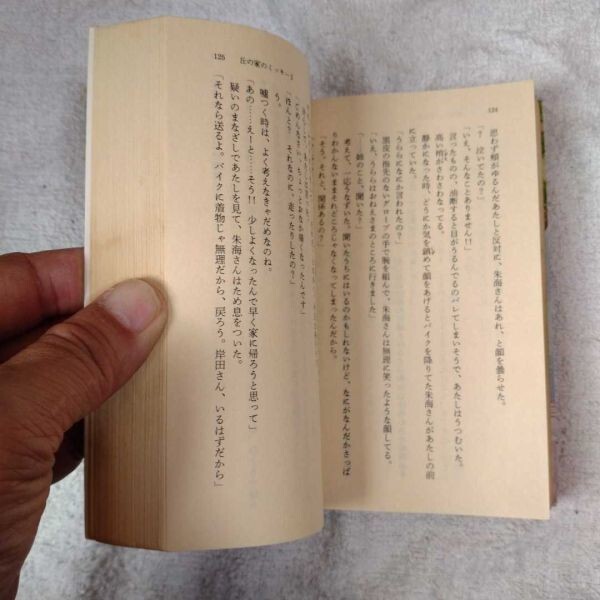 124
思わず頰がゆるんだあたしと反対に、朱海さんはあれ、と顔を曇らせた。
「? 泣いてたの?」
「いえ、そんなことありません!!」
言ったものの、油断すると目がうるんでるのバレてしまいそうで、あたしはうつむいた。
高い梢がさわさわなってる。
静かになった時、どうにか気を鎮めて顔をあげるとバイクを降りてた朱海さんがあたしの前
に立っていた。
「うららになにか言われたの?」
「いえ、うららはおねえさまのところに行きました」
黒皮の指先のないグローブの手で腕を組んで、朱海さんは無理に笑ったような顔してる。
「……姉のこと、聞いた?」
考えて、一応うなずいた。聞いたうちにはいるのかもしれないけど、なにがなんだかさっぱ
りわかんないままそれどころじゃなくなってしまったんだから。
「そう。それと、関係あるの?」
125 丘の家のミッキー2
「ごめんなさい、ちょっとおなか痛くなったんです」
「ほんと? それなのに、走ったりしたの?」
う。
嘘つく時は、よく考えなきゃだめなのね。
「あの……えーと……そう!! 少しよくなったんで早く家に帰ろうと思って」
疑いのまなざしであたしを見て、朱海さんはため息をついた。
「それなら送るよ。バイクに着物じゃ無理だから、戻ろう。岸田さん、いるはずだから」